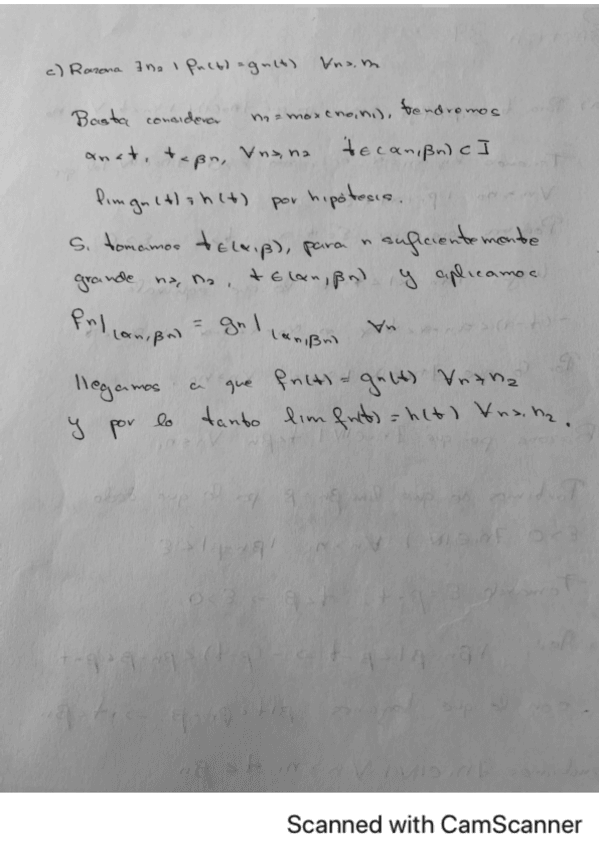 c) Razona ∃n₂ | fn(t) = gn(t) ∀n ≥ n₂
Basta considerar n₂ = max(n₀,n₁), tendremos
αn < t, t < βn, ∀n ≥ n₂ t ∈ (αn,βn) ⊂ I
lim gn(t) = h(t) por hipótesis.
Si tomamos t ∈ (α,β), para n suficientemente
grande n ≥ n₂, t ∈ (αn,βn) y aplicamos
fn|(αn,βn) = gn|(αn,βn) ∀n
llegamos a que fn(t) = gn(t) ∀n ≥ n₂
y por lo tanto lim fn(t) = h(t) ∀n ≥ n₂.
Scanned with CamScanner